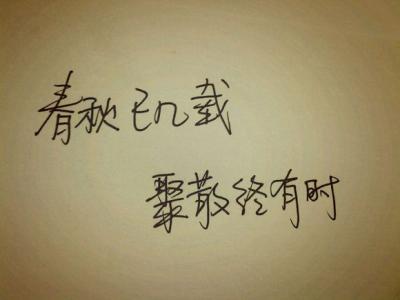 春秋已几载
聚散终有时